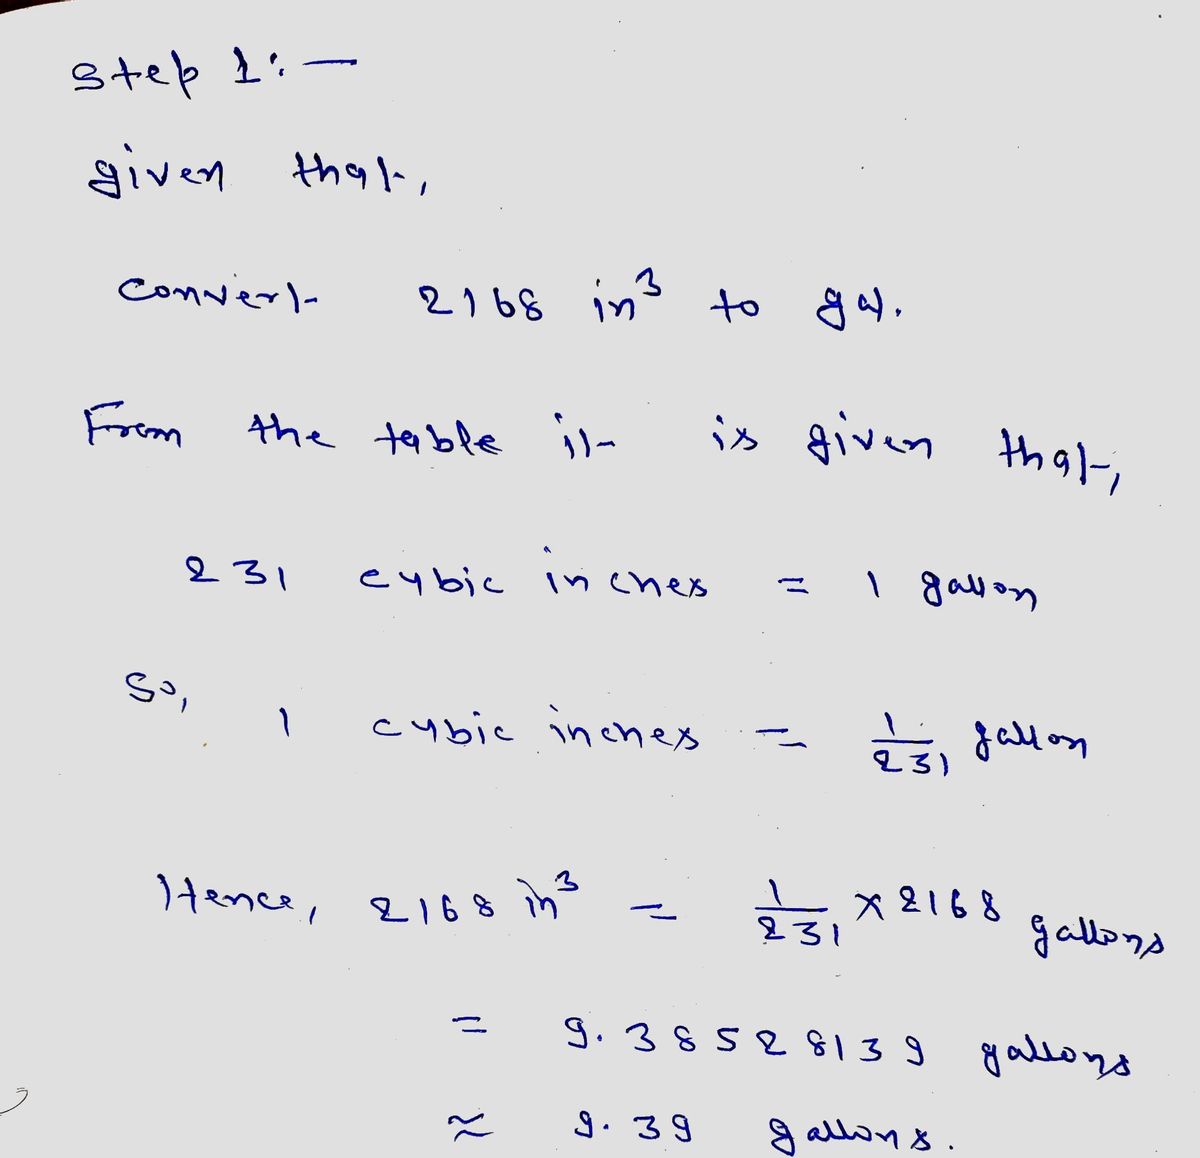 Step 1:-
given that,
Convert 2168 in³ to gal.
From the table it is given that,
231 cubic inches = 1 gallon
So,
1 cubic inches = 1/231 gallon
Hence, 2168 in³ = 1/231 × 2168 gallons
= 9.38528139 gallons
≈ 9.39 gallons.